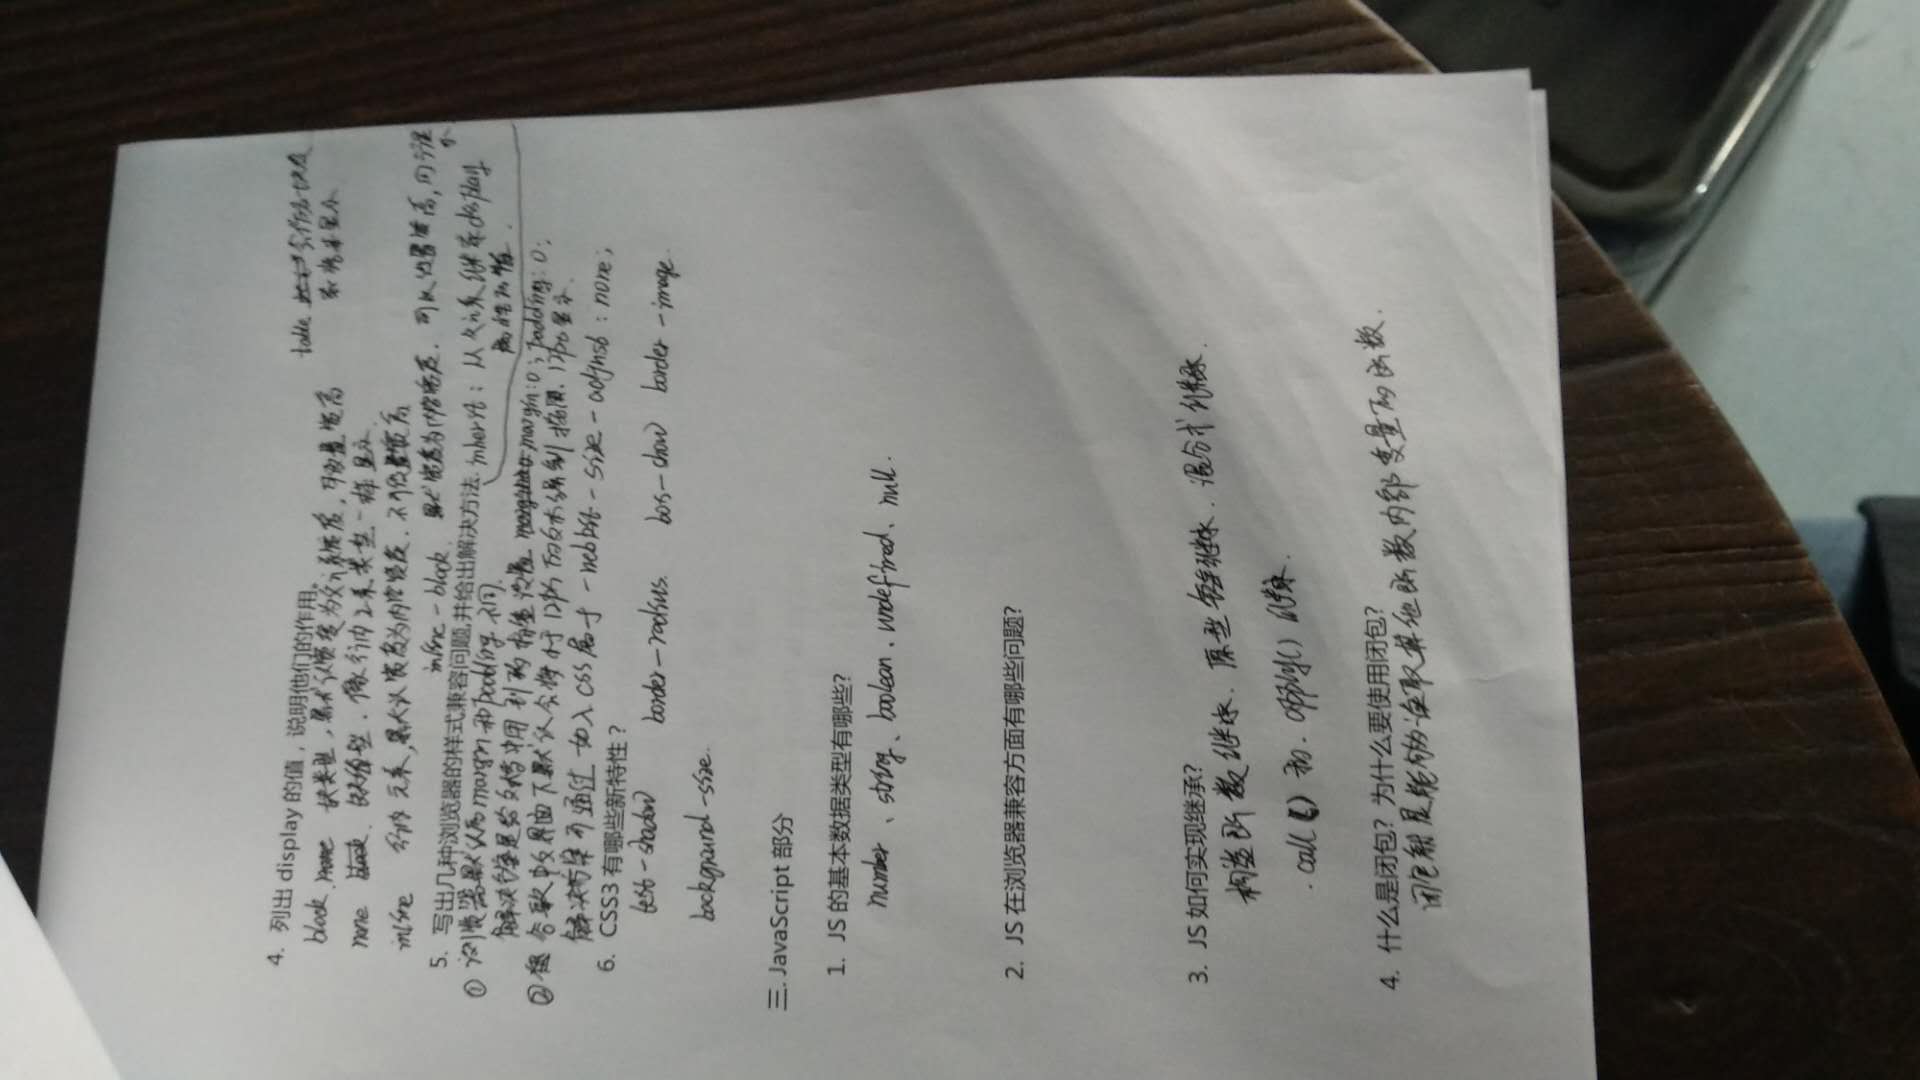 4. 列出 display 的值，说明他们的作用。
block 块类型，默认宽度为父元素宽度，可设置宽高
table 会作为块级
表格来显示
none 缺省型. 像行内元素类型一样显示.
inline 行内元素,默认宽度为内容宽度. 不可设置宽高
inline-block. 默认宽度为内容宽度. 可以设置宽高,同行显
示
5. 写出几种浏览器的样式兼容问题,并给出解决方法.
inherit: 从父元素继承display
属性的值.
① 浏览器默认的margin和padding不同.
解决方案是给文档中用到的标签设置 margin:0; padding:0;
② 谷歌中文界面下默认会将小于12px的文本强制按照 12px显示.
解决方案可通过加入css属于 -webkit-size-adjust: none;
6. CSS3 有哪些新特性？
text-shadow border-radius. box-show border-image.
background-size.
三. JavaScript 部分
1. JS 的基本数据类型有哪些?
number、string、boolean、undefined、null.
2. JS 在浏览器兼容方面有哪些问题?
3. JS 如何实现继承?
构造函数继承、原型链继承、混合式继承.
.call() 和. apply() 继承.
4. 什么是闭包? 为什么要使用闭包?
闭包就是能够读取其他函数内部变量的函数.